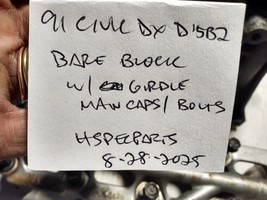 91 CIVIC DX D15B2
BARE BLOCK
W/ GIRDLE
MAIN CAPS/BOLTS
HSPECPARTS
8-28-2025